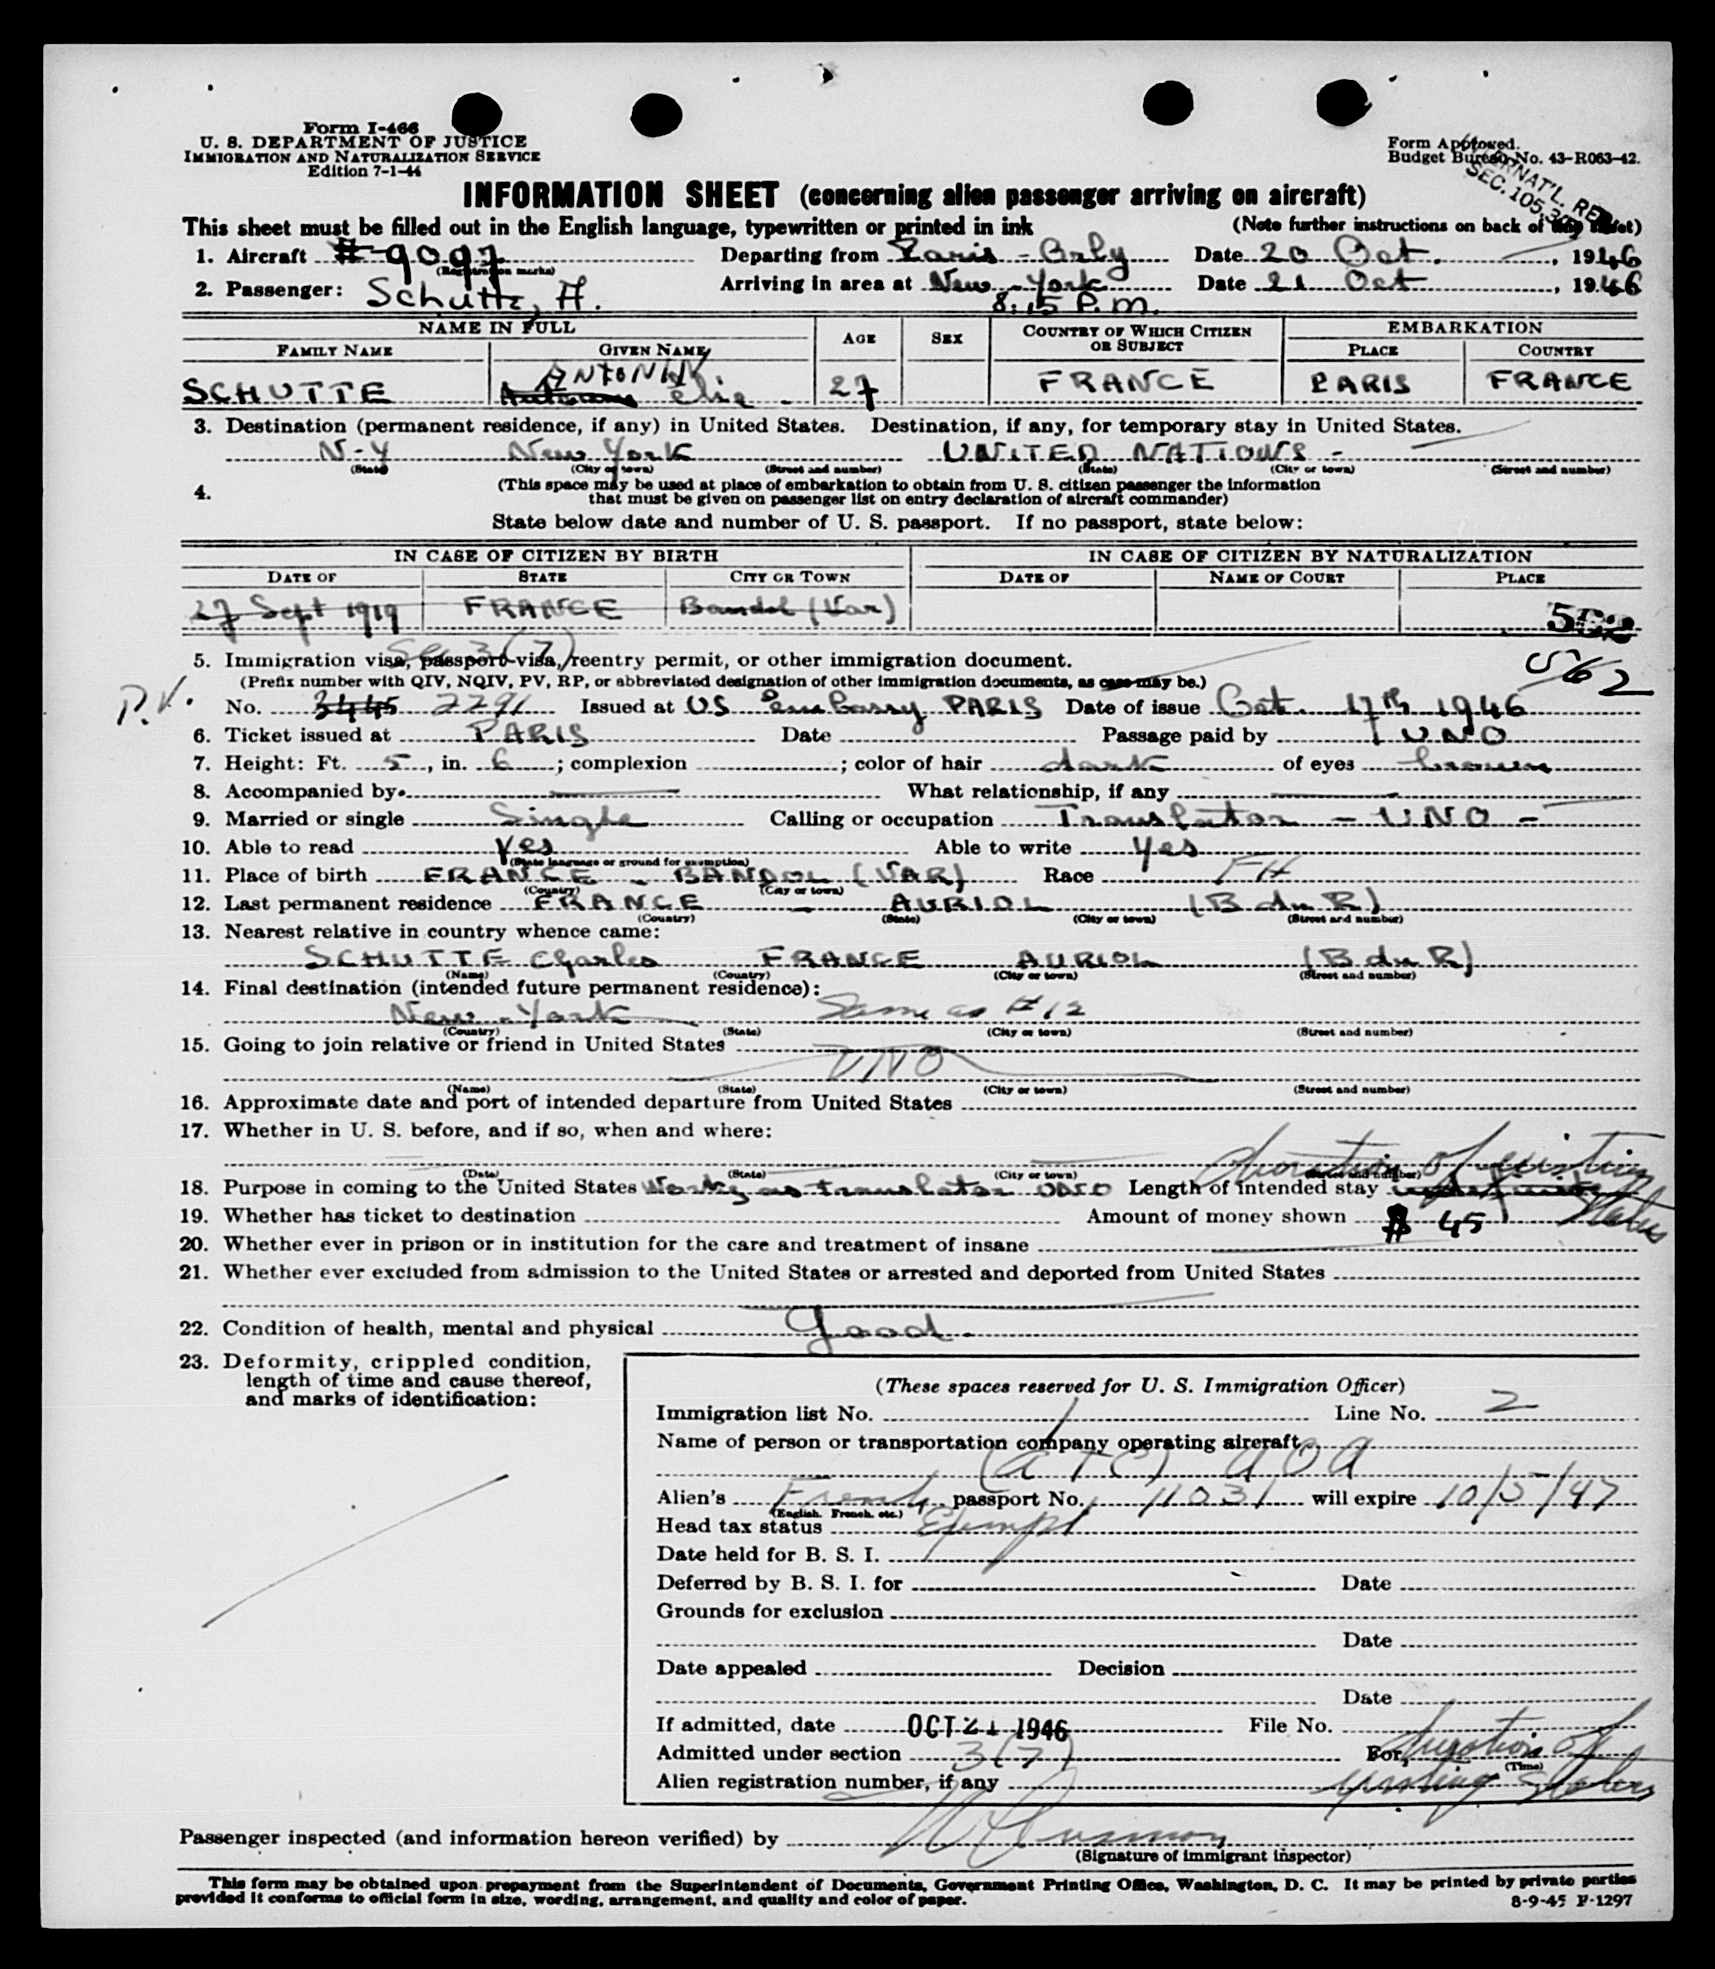 Form I-466
U. S. DEPARTMENT OF JUSTICE
IMMIGRATION AND NATURALIZATION SERVICE
Edition 7-1-44
Form Approved.
Budget Bureau No. 43-R063-42.
INTERNAT'L. REL.
SEC. 105.3
INFORMATION SHEET (concerning alien passenger arriving on aircraft)
This sheet must be filled out in the English language, typewritten or printed in ink (Note further instructions on back of this sheet)
1. Aircraft #-9097 Departing from Paris - Orly Date 20 Oct. , 1946
(Registration marks)
2. Passenger: Schutte, A. Arriving in area at New-York Date 21 Oct , 1946
8:15 P.m.
NAME IN FULL AGE SEX COUNTRY OF WHICH CITIZEN OR SUBJECT EMBARKATION
FAMILY NAME GIVEN NAME PLACE COUNTRY
ANTONIN
SCHUTTE Elie 27 FRANCE PARIS FRANCE
3. Destination (permanent residence, if any) in United States. Destination, if any, for temporary stay in United States.
N-Y New York UNITED NATIONS -
(State) (City or town) (Street and number) (State) (City or town) (Street and number)
4. (This space may be used at place of embarkation to obtain from U. S. citizen passenger the information
that must be given on passenger list on entry declaration of aircraft commander)
State below date and number of U. S. passport. If no passport, state below:
IN CASE OF CITIZEN BY BIRTH IN CASE OF CITIZEN BY NATURALIZATION
DATE OF STATE CITY OR TOWN DATE OF NAME OF COURT PLACE
27 Sept 1919 FRANCE Bandol (Var)
562
Sec 3(7)
5. Immigration visa, passport visa, reentry permit, or other immigration document.
562
(Prefix number with QIV, NQIV, PV, RP, or abbreviated designation of other immigration documents, as case may be.)
P.V. No. 3445 2291 Issued at US Embassy PARIS Date of issue Oct. 17th 1946
6. Ticket issued at PARIS Date Passage paid by UNO
7. Height: Ft. 5, in. 6; complexion ; color of hair dark of eyes brown
8. Accompanied by What relationship, if any
9. Married or single Single Calling or occupation Translator - UNO -
10. Able to read Yes Able to write yes
(State language or ground for exemption)
11. Place of birth FRANCE - BANDOL (VAR) Race FH
(Country) (City or town)
12. Last permanent residence FRANCE - AURIOL (B du R)
(Country) (State) (City or town) (Street and number)
13. Nearest relative in country whence came:
SCHUTTE Charles FRANCE AURIOL (B du R)
(Name) (Country) (City or town) (Street and number)
14. Final destination (intended future permanent residence):
New-York Same as #12
(Country) (State) (City or town) (Street and number)
15. Going to join relative or friend in United States
UNO
(Name) (State) (City or town) (Street and number)
16. Approximate date and port of intended departure from United States
17. Whether in U. S. before, and if so, when and where:
(Date) (State) (City or town) (Street and number)
duration of existing status
18. Purpose in coming to the United States Work as translator UNO Length of intended stay
19. Whether has ticket to destination Amount of money shown $ 45
20. Whether ever in prison or in institution for the care and treatment of insane
21. Whether ever excluded from admission to the United States or arrested and deported from United States
22. Condition of health, mental and physical Good.
23. Deformity, crippled condition,
length of time and cause thereof,
and marks of identification:
(These spaces reserved for U. S. Immigration Officer)
Immigration list No. 1 Line No. 2
Name of person or transportation company operating aircraft
(ATC) AOA
Alien's French passport No. 11031 will expire 10/5/47
(English, French, etc.)
Head tax status Exempt
Date held for B. S. I.
Deferred by B. S. I. for Date
Grounds for exclusion
Date
Date appealed Decision
Date
If admitted, date OCT 21 1946 File No.
Admitted under section 3(7) For duration of
(Time)
Alien registration number, if any existing status
Passenger inspected (and information hereon verified) by
(Signature of immigrant inspector)
This form may be obtained upon prepayment from the Superintendent of Documents, Government Printing Office, Washington, D. C. It may be printed by private parties
provided it conforms to official form in size, wording, arrangement, and quality and color of paper.
8-9-45 F-1297